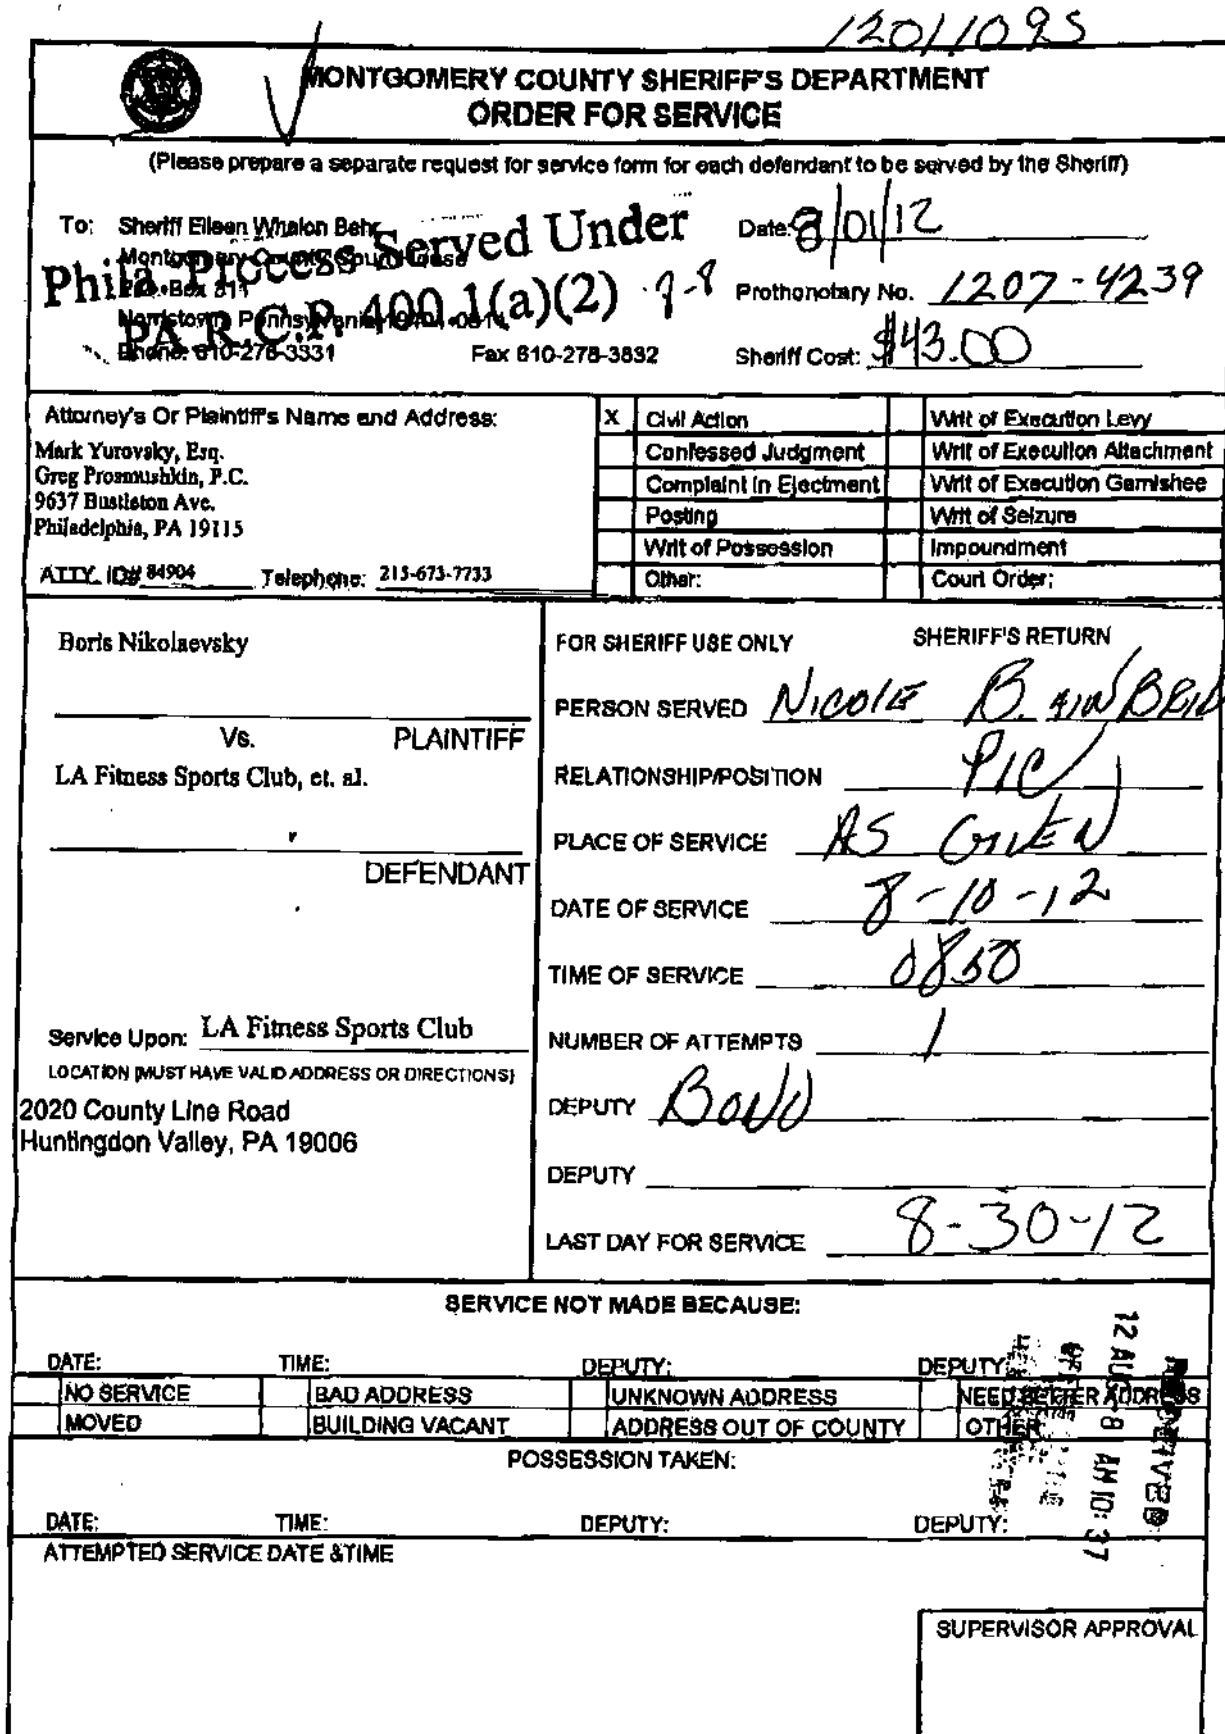 12011095
MONTGOMERY COUNTY SHERIFF'S DEPARTMENT
ORDER FOR SERVICE
(Please prepare a separate request for service form for each defendant to be served by the Sheriff)
To: Sheriff Eileen Whalon Behr
Montgomery County Court House
P.O. Box 311
Norristown, Pennsylvania
Phone: 610-278-3331 Fax 610-278-3832
Phila. Process Served Under
PA R.C.P. 400.1(a)(2) 9-8
Date: 8/01/12
Prothonotary No. 1207-4239
Sheriff Cost: $43.00
Attorney's Or Plaintiff's Name and Address:
Mark Yurovsky, Esq.
Greg Prosmushkin, P.C.
9637 Bustleton Ave.
Philadelphia, PA 19115
ATTY. ID# 84904 Telephone: 215-673-7733
X Civil Action Writ of Execution Levy
Confessed Judgment Writ of Execution Attachment
Complaint in Ejectment Writ of Execution Garnishee
Posting Writ of Seizure
Writ of Possession Impoundment
Other: Court Order:
Boris Nikolaevsky
Vs. PLAINTIFF
LA Fitness Sports Club, et. al.
DEFENDANT
Service Upon: LA Fitness Sports Club
LOCATION (MUST HAVE VALID ADDRESS OR DIRECTIONS)
2020 County Line Road
Huntingdon Valley, PA 19006
FOR SHERIFF USE ONLY SHERIFF'S RETURN
PERSON SERVED NICOLE
RELATIONSHIP/POSITION PIC
PLACE OF SERVICE AS GIVEN
DATE OF SERVICE 8-10-12
TIME OF SERVICE 0850
NUMBER OF ATTEMPTS 1
DEPUTY
DEPUTY
LAST DAY FOR SERVICE 8-30-12
SERVICE NOT MADE BECAUSE:
DATE: TIME: DEPUTY: DEPUTY:
NO SERVICE BAD ADDRESS UNKNOWN ADDRESS NEED BETTER ADDRESS
MOVED BUILDING VACANT ADDRESS OUT OF COUNTY OTHER
POSSESSION TAKEN:
DATE: TIME: DEPUTY: DEPUTY:
12 AUG -8 AM 10:37
ATTEMPTED SERVICE DATE & TIME
SUPERVISOR APPROVAL